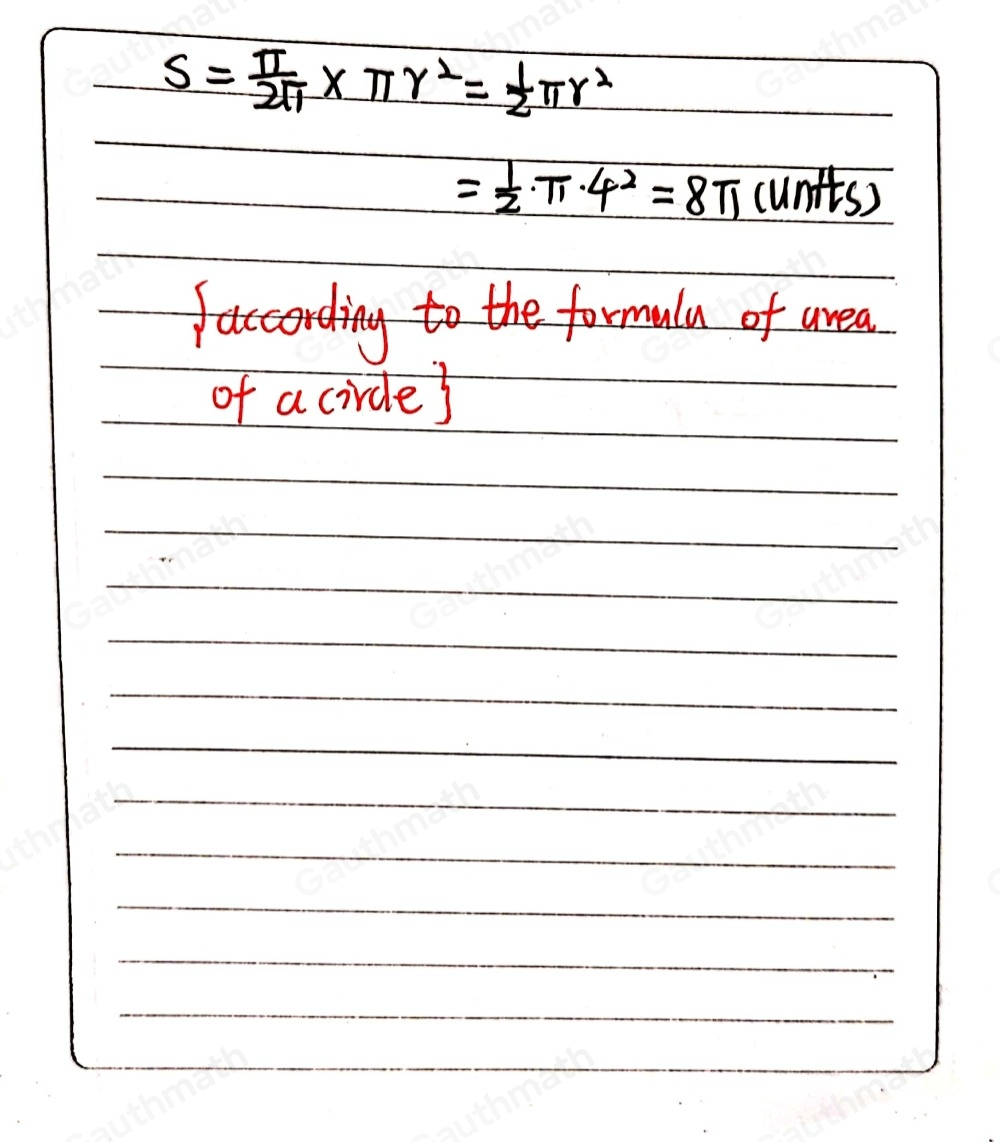 S = π/2π × πr² = 1/2 πr²
= 1/2 · π · 4² = 8π (units)
{according to the formula of area
of a circle}
Gauthmath